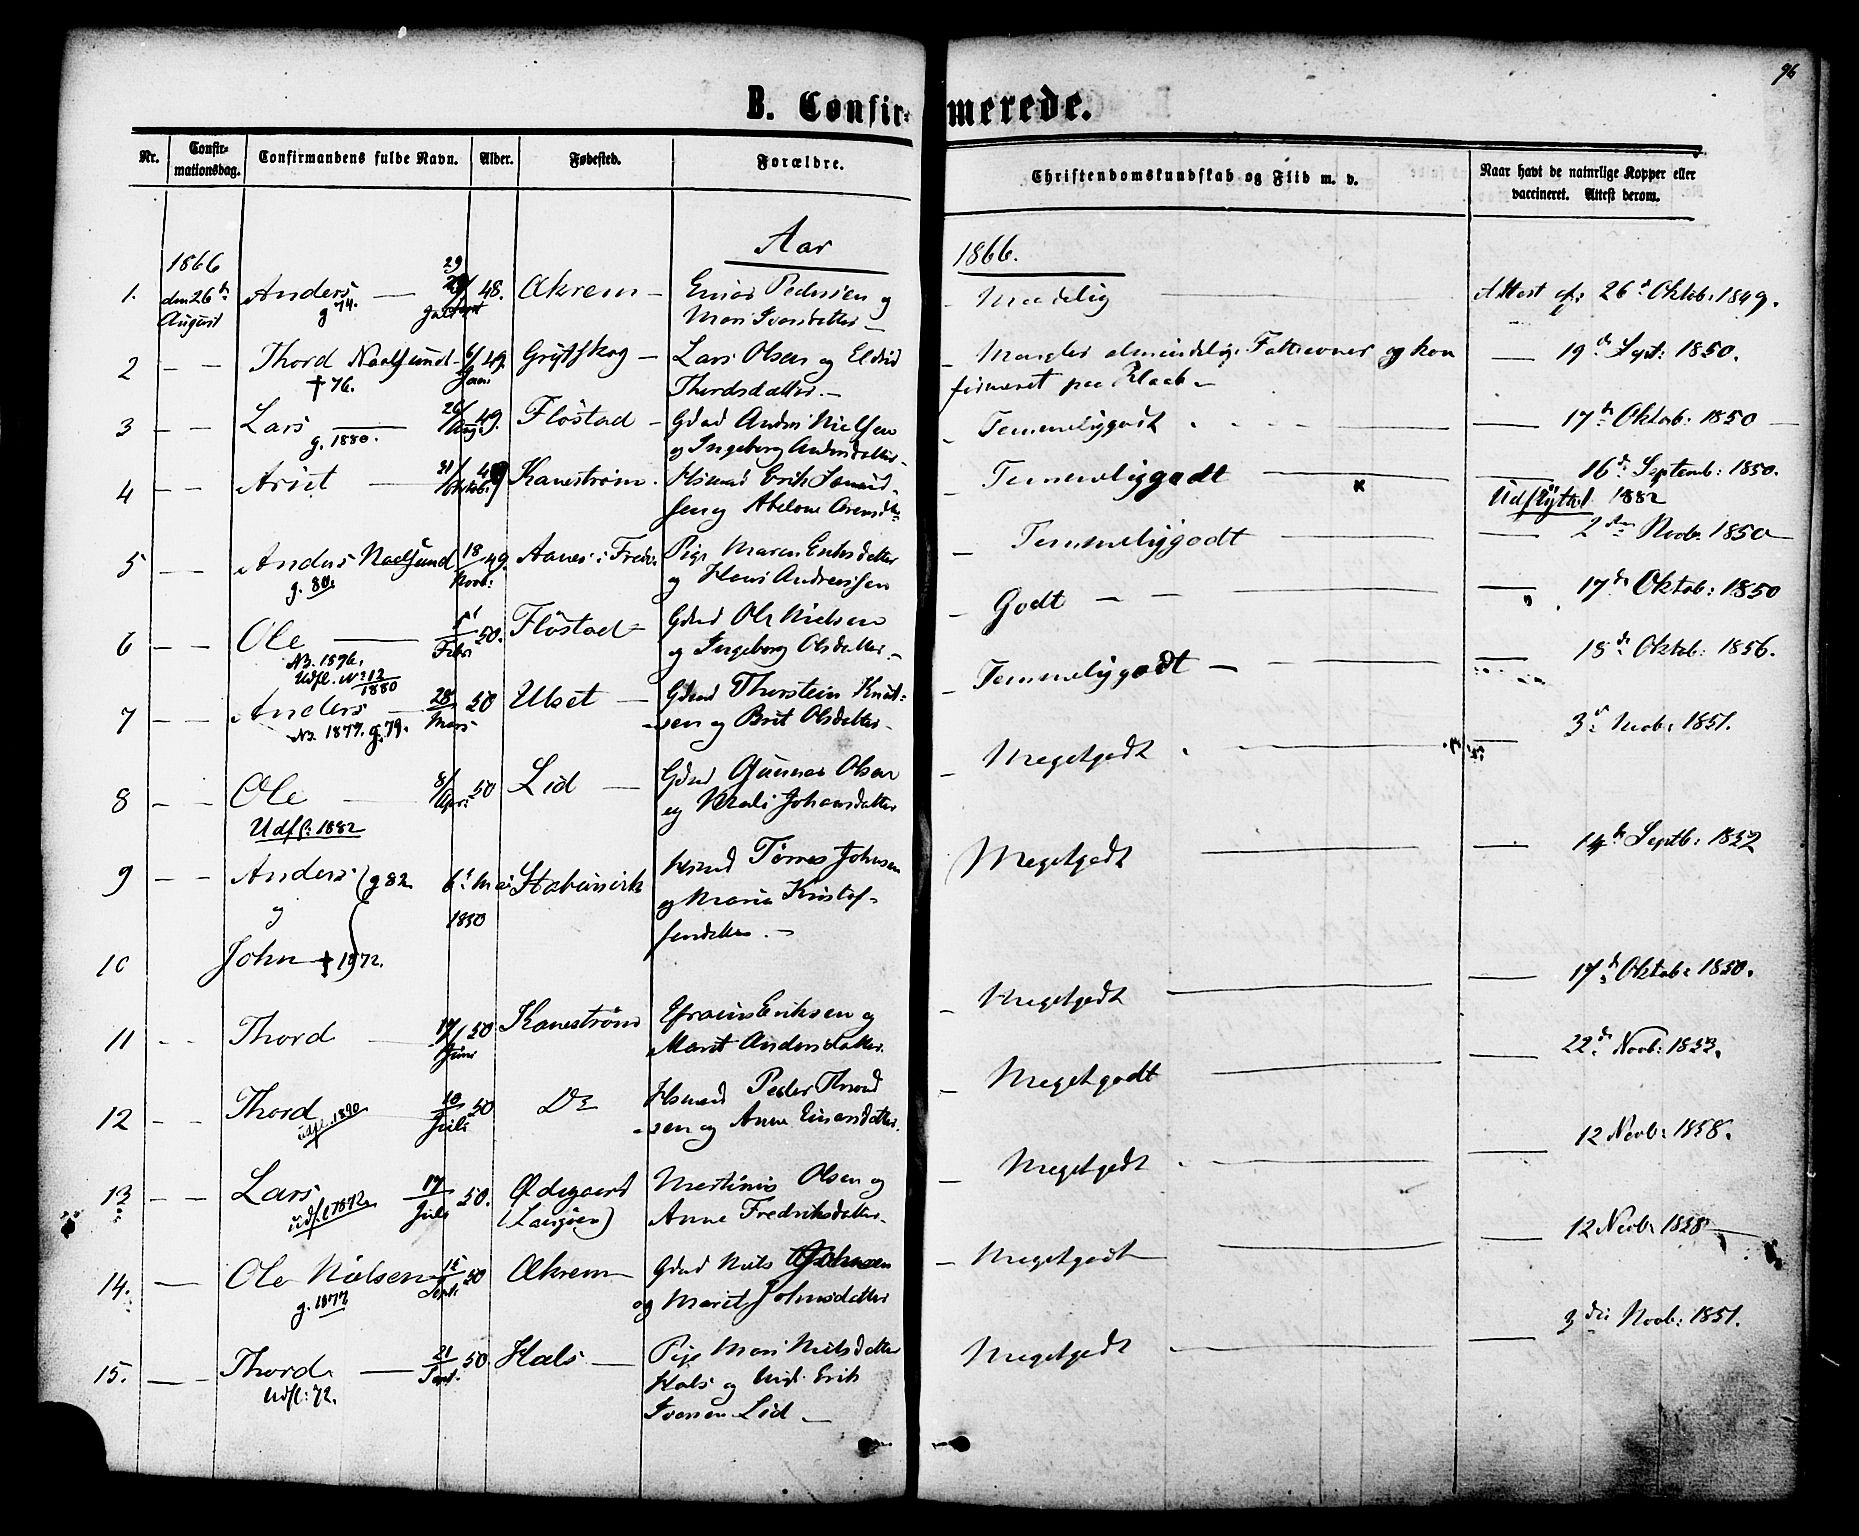 96
B. Confirmerede.
Nr. Confirmationsdag. Confirmandens fulde Navn. Alder. Fødested. Forældre. Christendomskundskab og Flid m. v. Naar havt de naturlige Kopper eller vaccineret. Attest derom.
Aar 1866.
1866
1. den 26de August Anders g 74. 29 48. Økrem Einar Pedersen og
Mari Iversdatter Maadelig Attest af 26d Oktob: 1849.
2 Thord Naalsund 6/ Jan: 49. Grytskog Lars Olsen og Eldrid
† 76. Thordsdatter. Mangler almindelige og kon
firmeret paa 19de Sept: 1850.
3 Lars 26/ Aug: 49. Flöstad Gdmd Anders Nielsen
g. 1880. og Ingeborg Andersdatter Temmeliggodt 17de Oktob: 1850
4 Arnt 31/ Oktob: 49 Kanestrøm Hsmd Erik
sen og Abelone Temmeliggodt x 16d Septemb: 1850.
Udflyttet 1882
5 Anders Naalsund 18 Novb: 49. Aanes i Fredr. Pige Maren Eriksdatter
g. 80. og Hans Andreassen Temmeliggodt 2den Novb. 1850
6 Ole 5/ Febr 50. Flöstad Gdmd Ole Nielsen
og Ingeborg Olsdatter. Godt 17de Oktob: 1850
No. 1876.
Udfl. No 12
1880
7 Anders 28 Mars 50 Ulset Gdmd Thorstein Knud-
sen og Brit Olsdatter. Temmeliggodt 18de Oktob: 1856.
No. 1877. g. 79.
8 Ole 8/ April 50 Lid Gdmd Gunnar Olsen
og Mali Johansdatter Megetgodt 3d Novb: 1851.
Udfl: 1882
9 Anders g 82 6te Mai Stabursvik Hsmd Tørres Johnsen
og 1850 og Maria Kristof-
fersdatter. Megetgodt 14de Septb: 1852
10 John † 1872.
11 Thord 17/ Juni 50 Kanestrøm Efraim Eriksen og
Marit Andersdatter. Megetgodt 17de Oktob: 1850.
12 Thord 10 Juli 50 Do Hsmd Peder Thord
udfl. 1890 sen og Anne Einarsdatter. Megetgodt 22de Novb: 1853.
13 Lars 17 Juli 50. Ødegaard Martinus Olsen og
udfl 1872 (Langøen) Anne Fredriksdatter. Megetgodt 12 Novb: 1858.
14. Ole Nielsen 50 Økrem Gdmd Niels Johnsen
g. 1877 og Marit Johnsdatter Megetgodt 12 Novb: 1858
15. Thord 21 Sept. 50 Hals Pige Mari Nielsdatter
Udfl: 72. Hals og Erik
Iversen Lid Megetgodt 3die Novb: 1851.